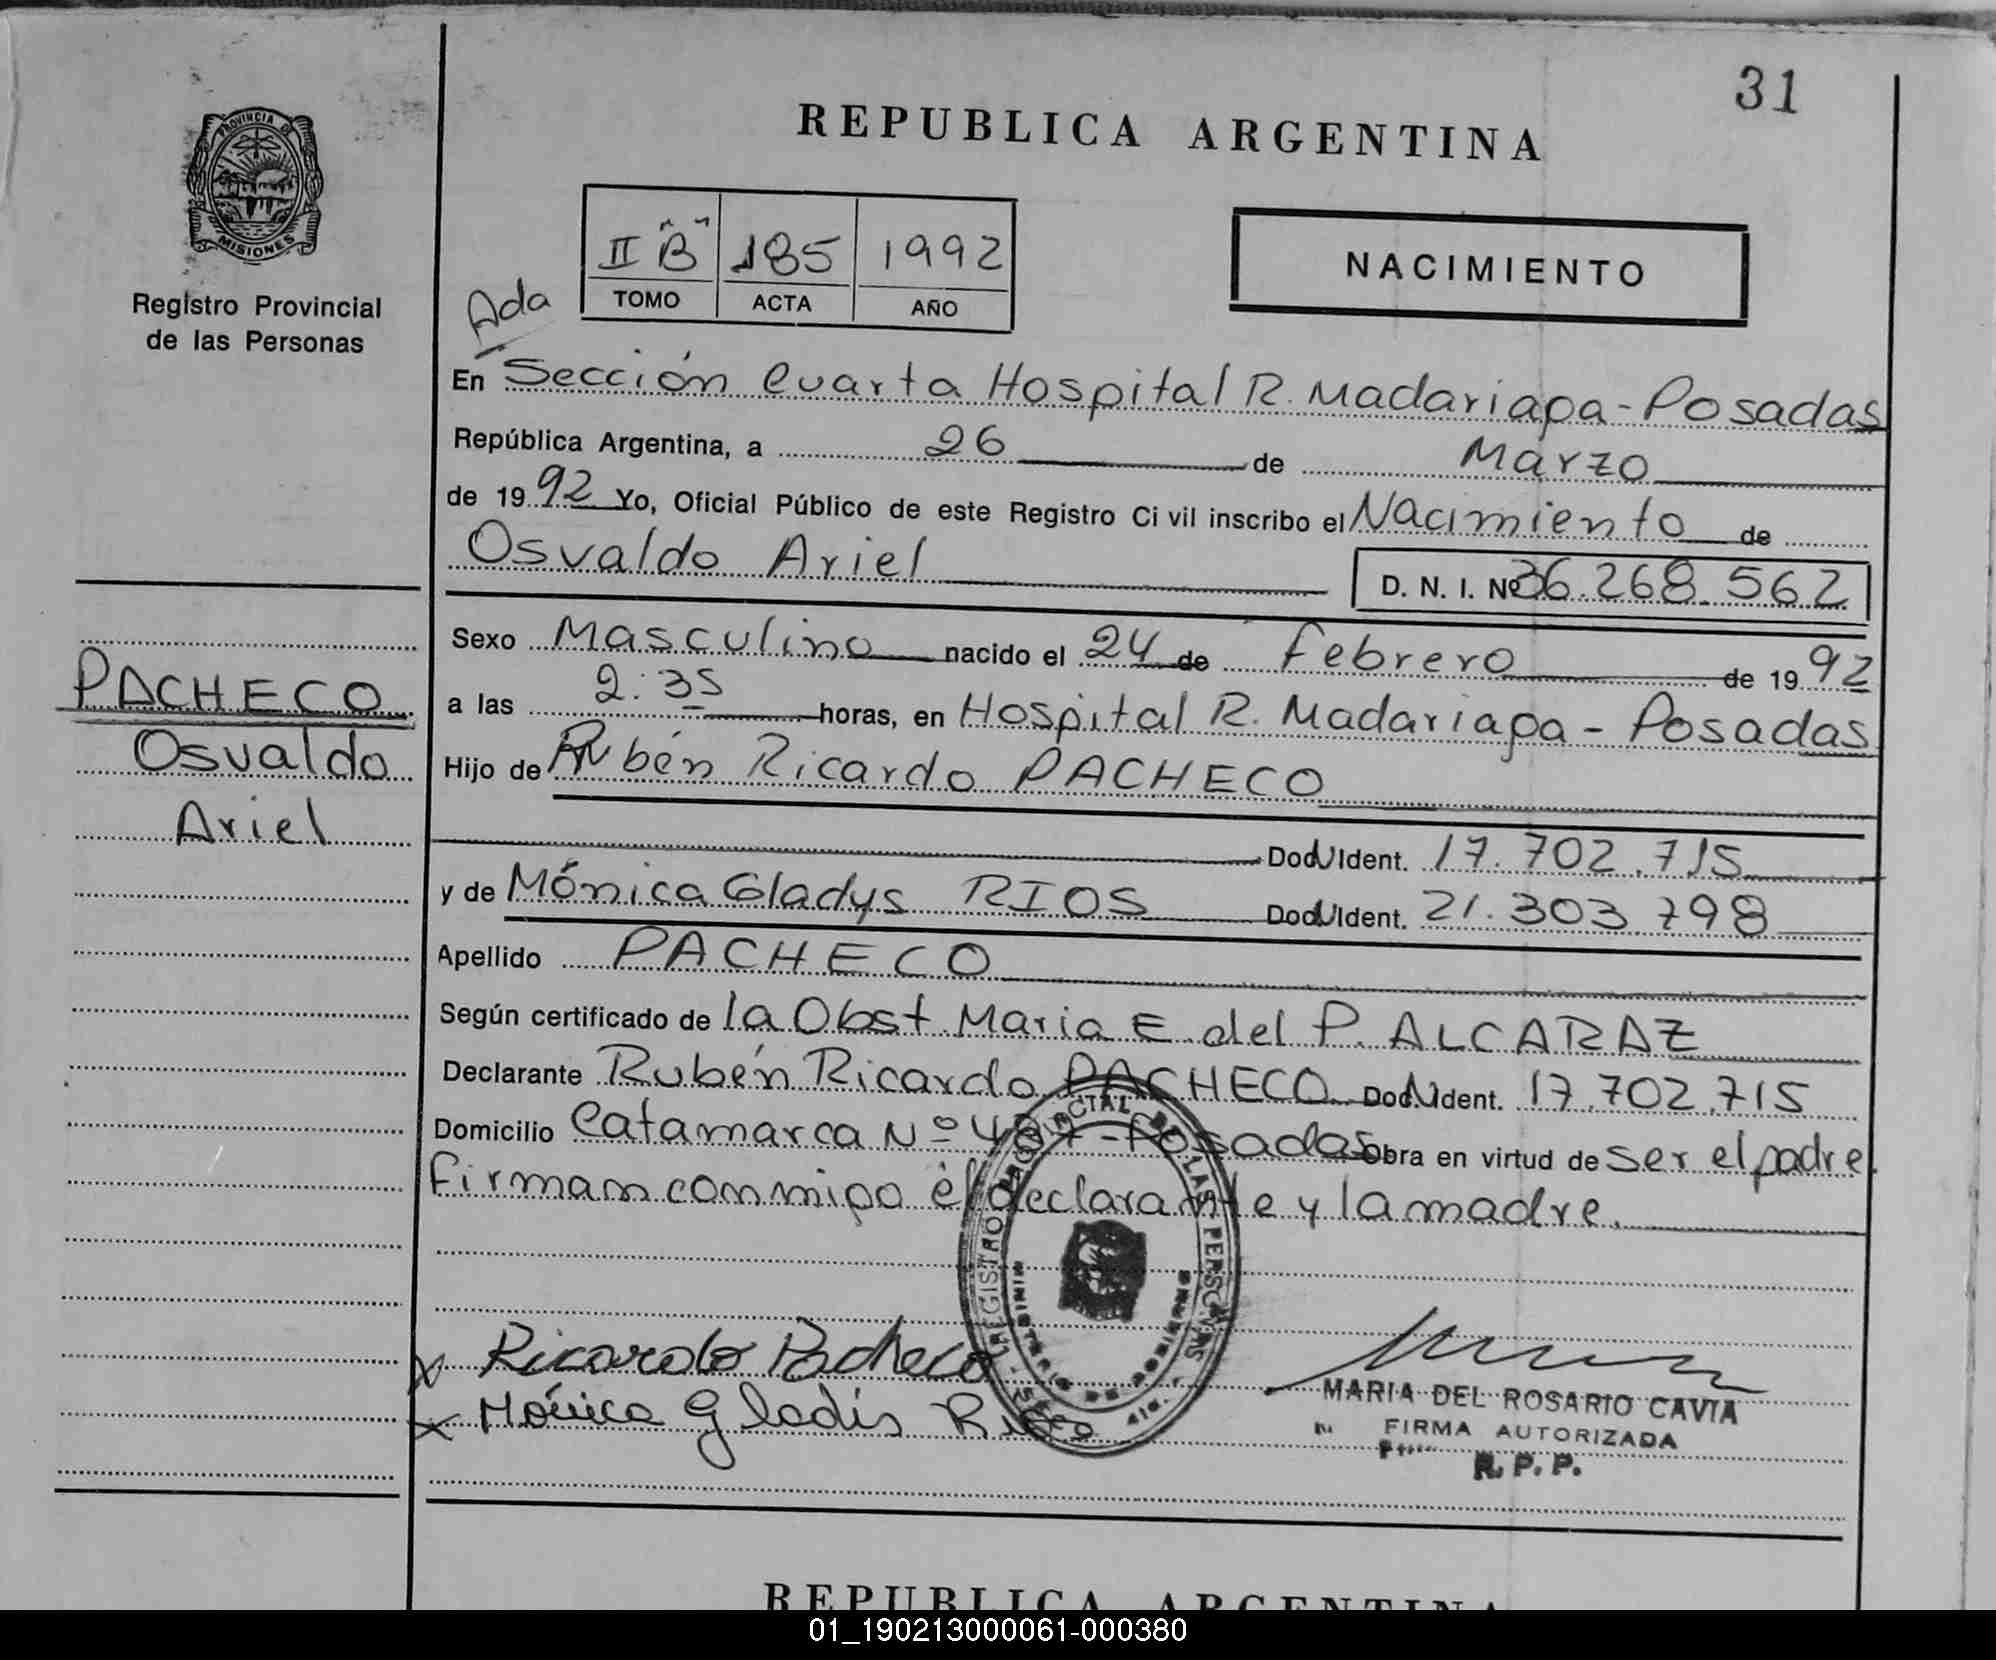 31
REPUBLICA ARGENTINA
PROVINCIA DE
MISIONES
Registro Provincial
de las Personas
II "B" 185 1992
TOMO ACTA AÑO
NACIMIENTO
Ada
En Sección Cuarta Hospital R. Madariaga - Posadas
República Argentina, a 26 de Marzo
de 1992 Yo, Oficial Público de este Registro Civil inscribo el Nacimiento de
Osvaldo Ariel D. N. I. Nº 36.268.562
Sexo Masculino nacido el 24 de Febrero de 1992
a las 2:35 horas, en Hospital R. Madariaga - Posadas
Hijo de Rubén Ricardo PACHECO
Doc. Ident. 17.702.715
y de Mónica Gladys RIOS Doc. Ident. 21.303.798
Apellido PACHECO
Según certificado de la Obst. Maria E. del P. ALCARAZ
Declarante Rubén Ricardo PACHECO Doc. Ident. 17.702.715
Domicilio Catamarca Nº - Posadas Obra en virtud de ser el padre.
Firman conmigo el declarante y la madre.
PACHECO
Osvaldo
Ariel
REGISTRO PROVINCIAL DE LAS PERSONAS
MINISTERIO DE GOBIERNO
x Ricardo Pacheco
x Mónica Gladis Rios
MARIA DEL ROSARIO CAVIA
FIRMA AUTORIZADA
R. P. P.
REPUBLICA ARGENTINA
01_190213000061-000380